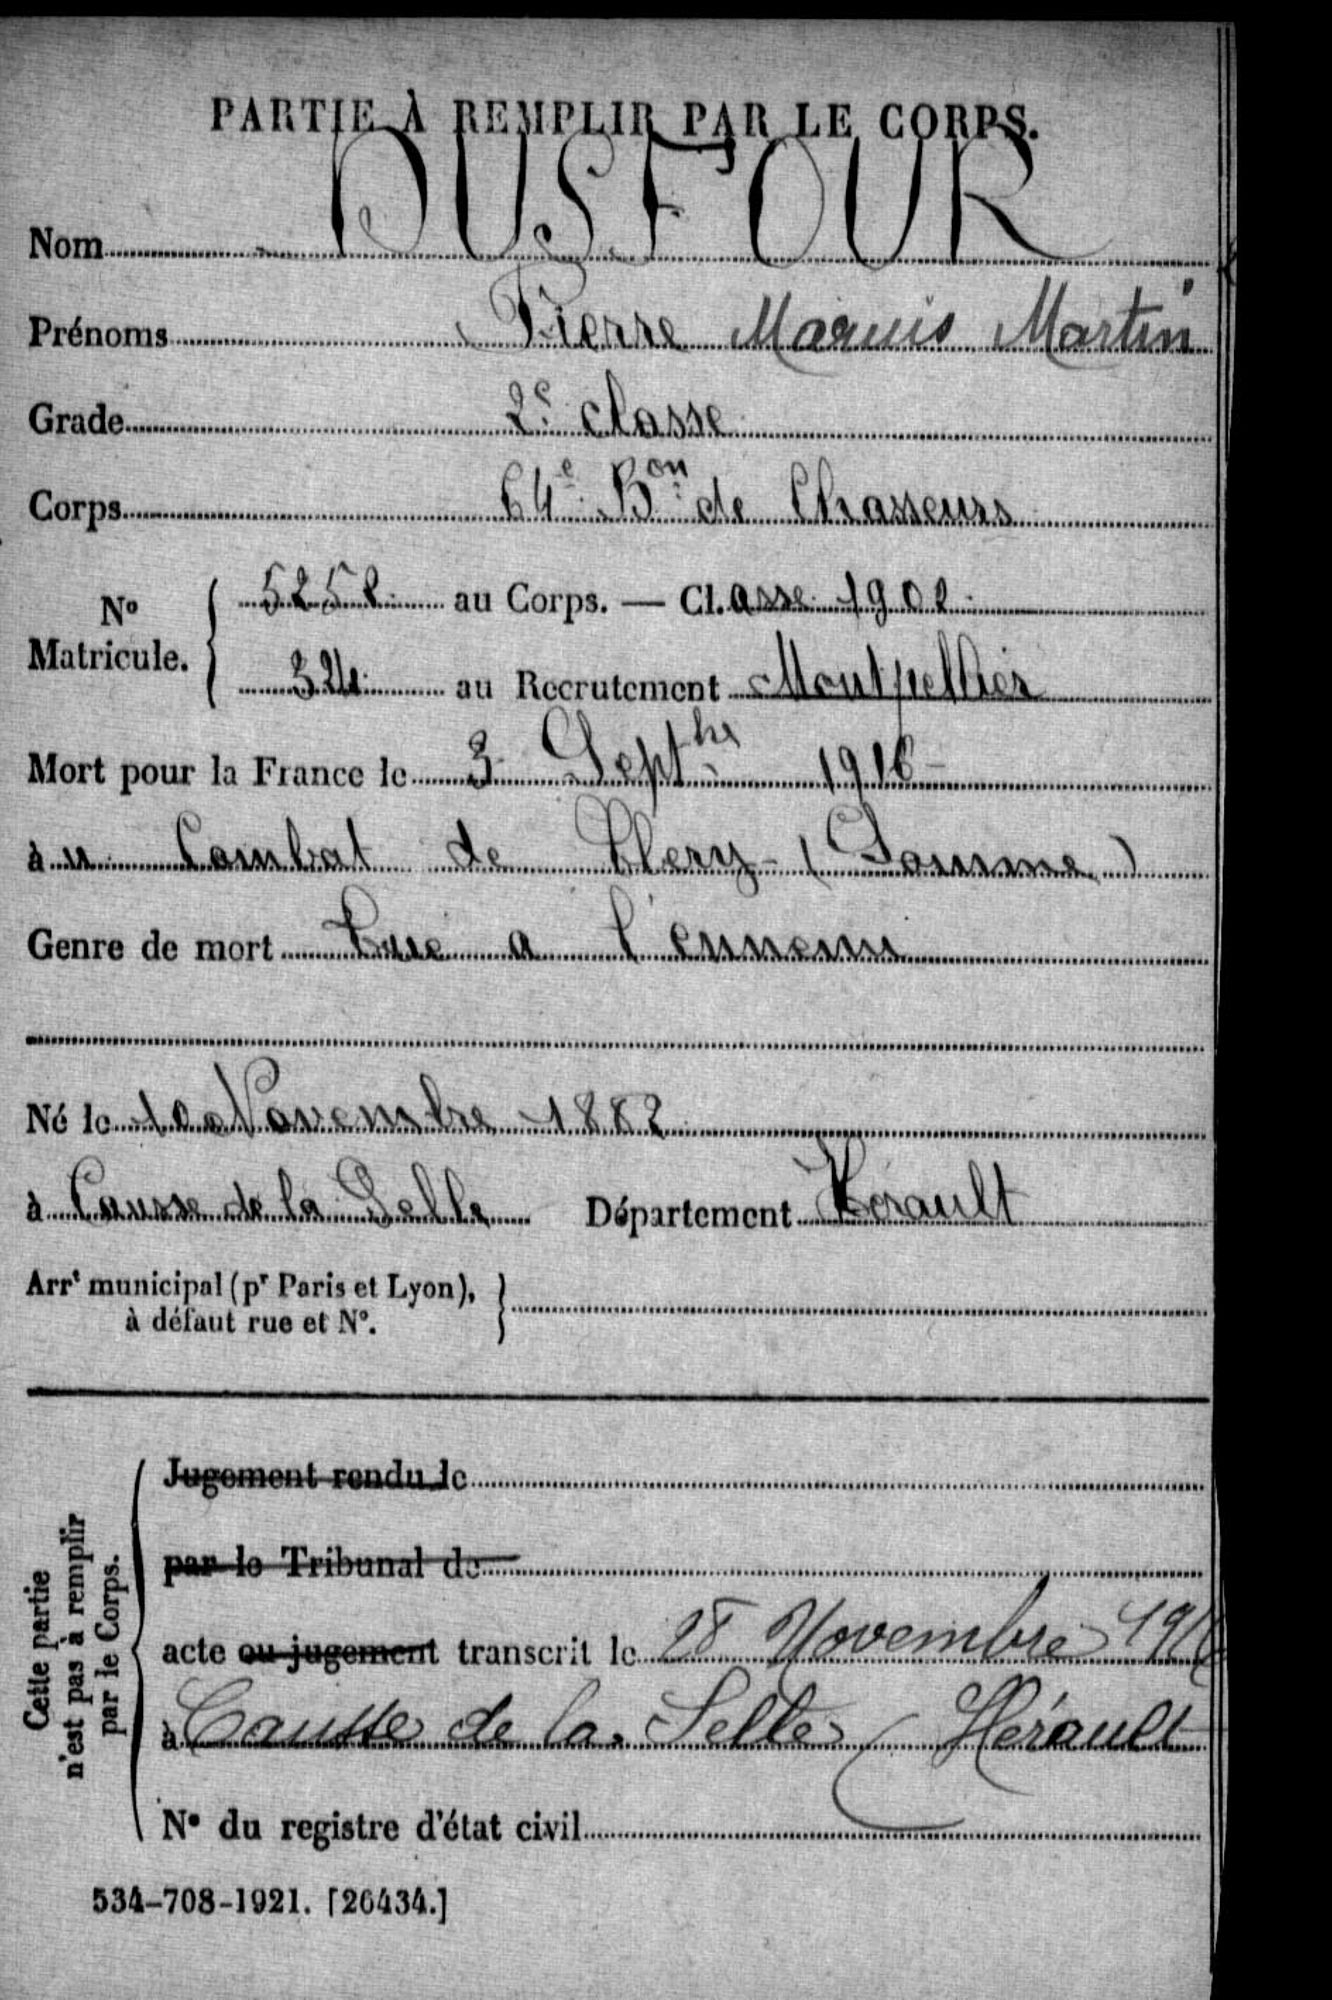 PARTIE À REMPLIR PAR LE CORPS.
Nom DUSFOUR
Prénoms Pierre Marius Martin
Grade 2e classe
Corps 64e Bon de Chasseurs
No Matricule. { 5252 au Corps. — Cl.asse 1902
324 au Recrutement Montpellier
Mort pour la France le 3 Septbre 1916
à u Combat de Clery (Somme)
Genre de mort Tué a l'ennemi
Né le 10 Novembre 1882
à Causse de la Selle Département Hérault
Arrt municipal (pr Paris et Lyon), à défaut rue et No. }
Cette partie n'est pas à remplir par le Corps.
Jugement rendu le
par le Tribunal de
acte ou jugement transcrit le 28 Novembre 1916
à Causse de la Selle (Hérault
No du registre d'état civil
534-708-1921. [26434.]